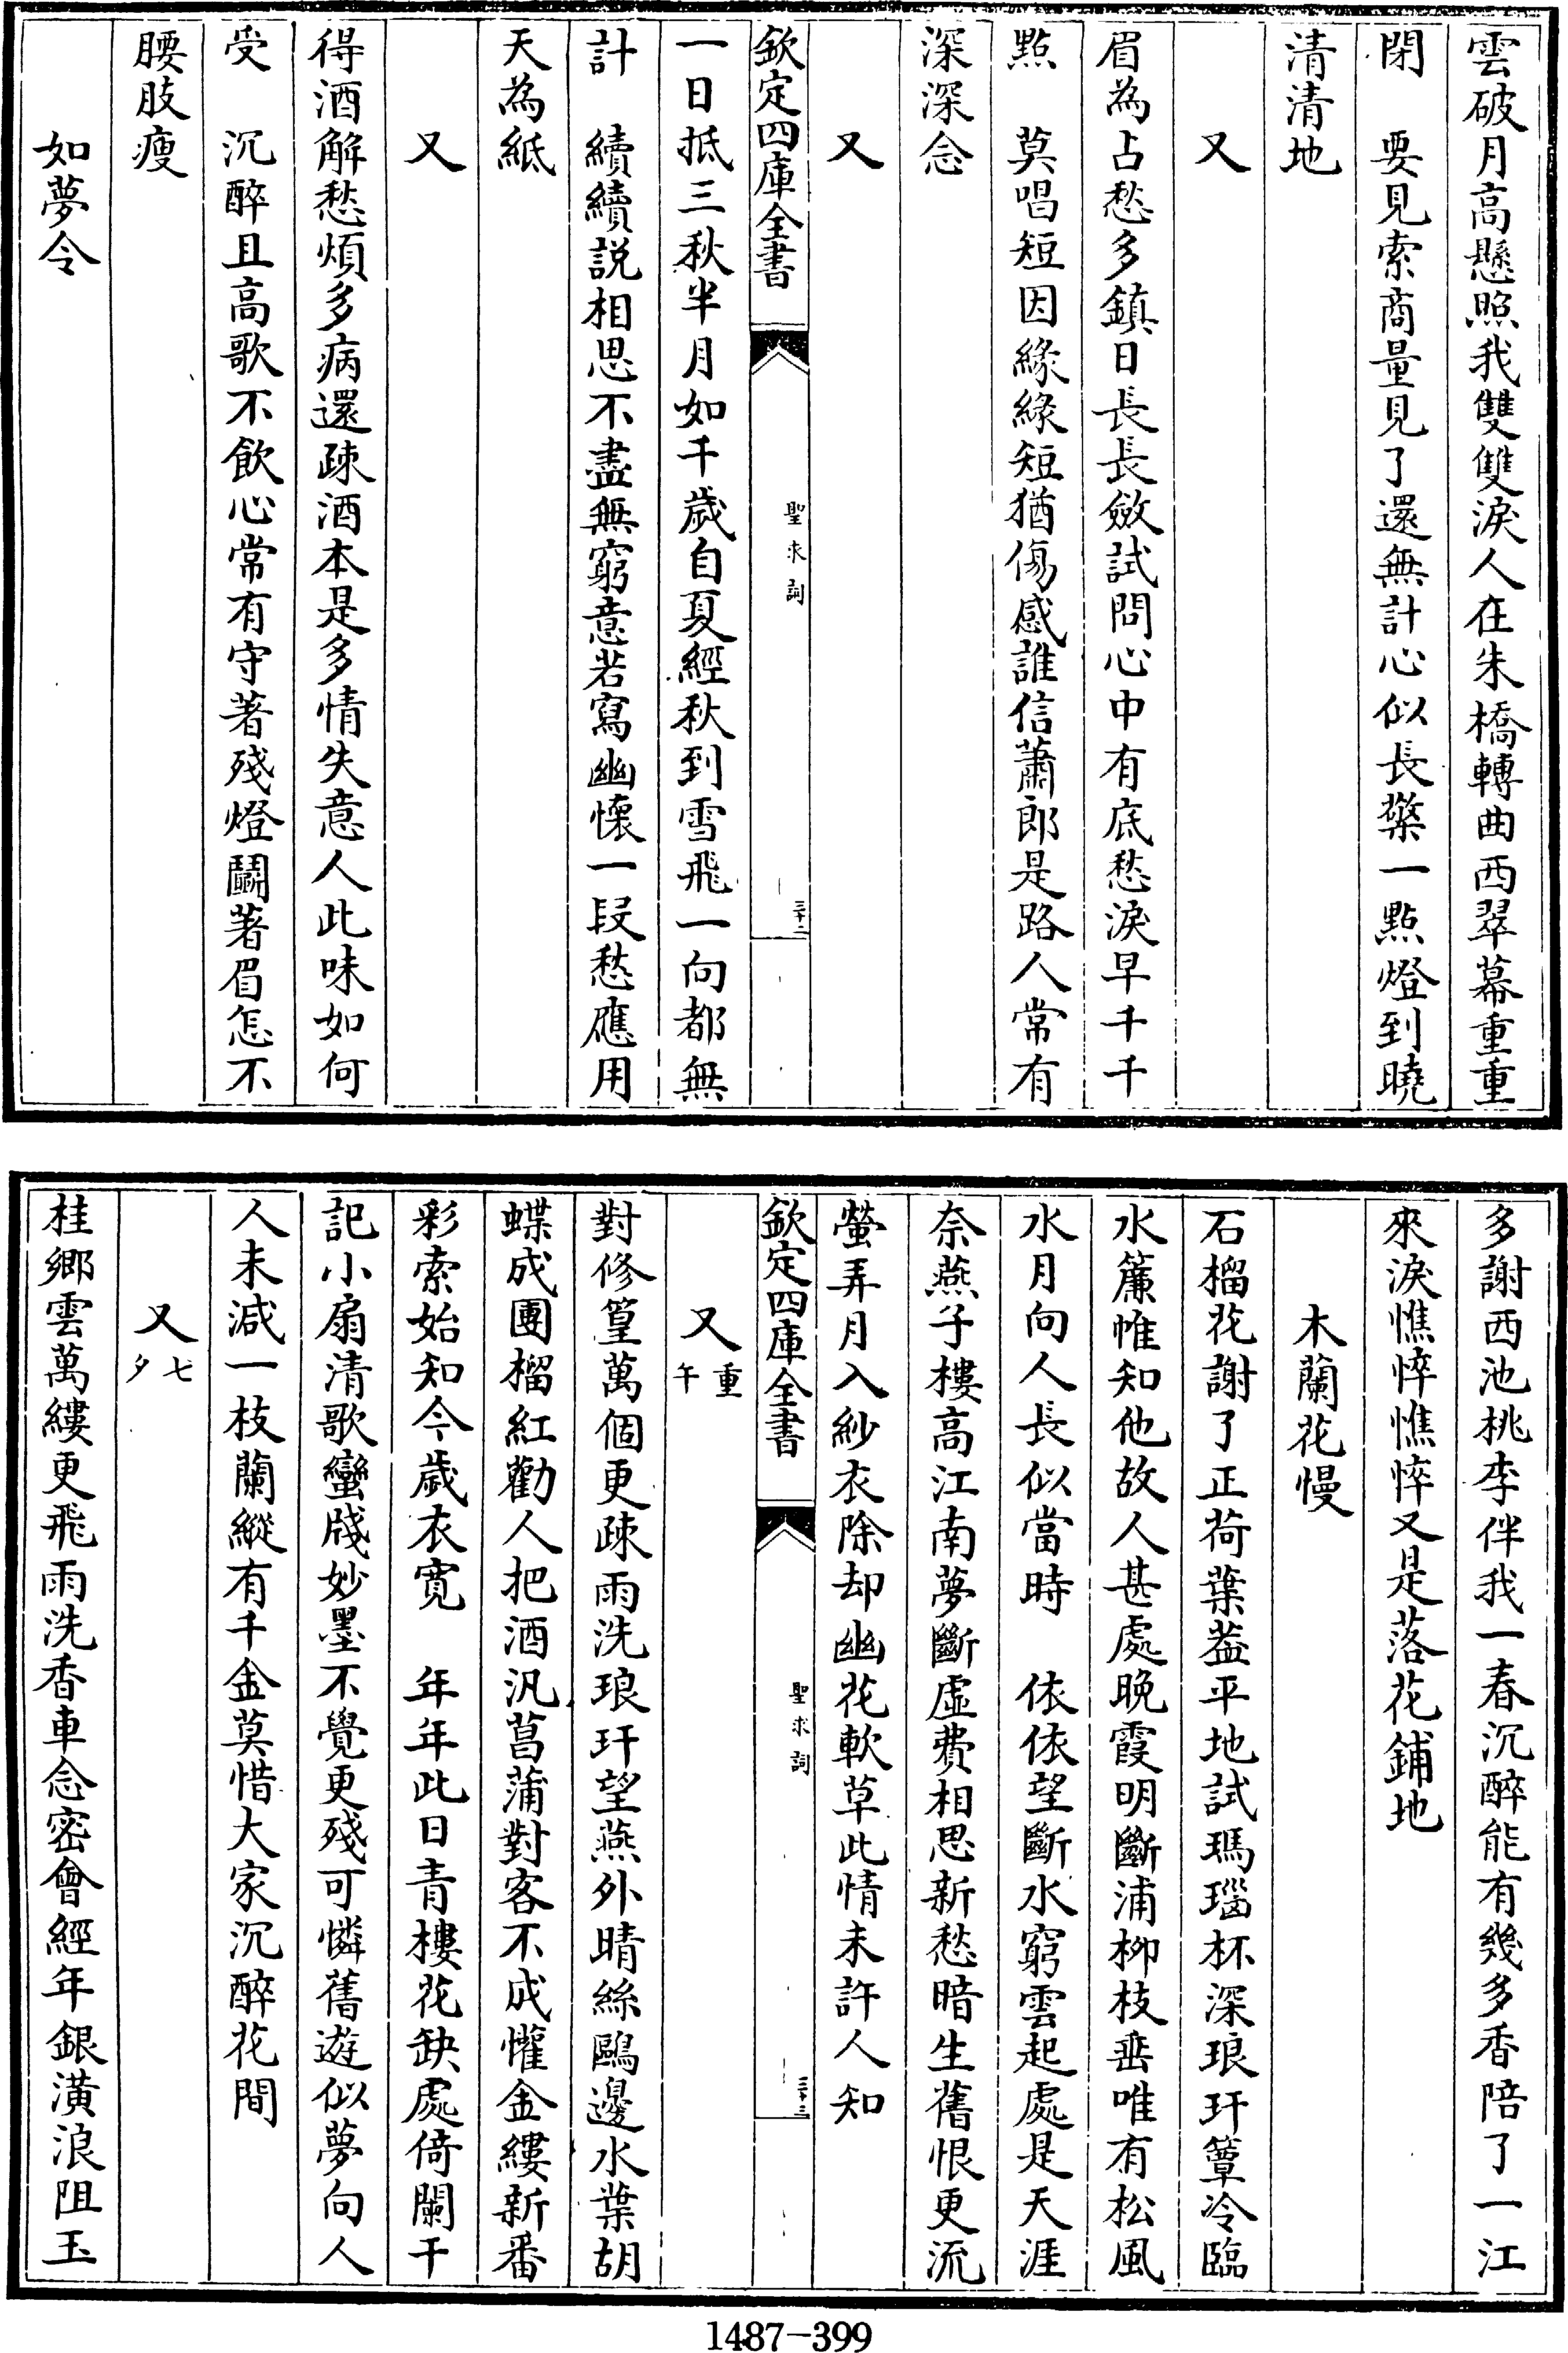 雲破月高懸照我雙雙淚人在朱橋轉曲西翠幕重重
閉　要見索商量見了還無計心似長檠一點燈到曉
清清地
又
眉為占愁多鎮日長長斂試問心中有底愁淚早千千
點　莫唱短因緣緣短猶傷感誰信蕭郎是路人常有
深深念
又
欽定四庫全書
聖求詞
三十二
一日抵三秋半月如千歲自夏經秋到雪飛一向都無
計　續續説相思不盡無窮意若寫幽懷一段愁應用
天為紙
又
得酒解愁煩多病還疎酒本是多情失意人此味如何
受　沉醉且高歌不飲心常有守著殘燈鬭著眉怎不
腰肢瘦
如夢令
多謝西池桃李伴我一春沉醉能有幾多香陪了一江
來淚憔悴憔悴又是落花鋪地
木蘭花慢
石榴花謝了正荷葉葢平地試瑪瑙杯深琅玕簟冷臨
水簾帷知他故人甚處晚霞明斷浦柳枝垂唯有松風
水月向人長似當時　依依望斷水窮雲起處是天涯
奈燕子樓高江南夢斷虛費相思新愁暗生舊恨更流
螢弄月入紗衣除却幽花軟草此情未許人知
欽定四庫全書
聖求詞
三十三
又重午
對修篁萬個更疎雨洗琅玕望燕外晴絲鷗邊水葉胡
蝶成團榴紅勸人把酒汎菖蒲對客不成懽金縷新番
彩索始知今歲衣寛　年年此日青樓花缺處倚闌干
記小扇清歌蠻牋妙墨不覺更殘可憐舊遊似夢向人
人未減一枝蘭縱有千金莫惜大家沉醉花間
又七夕
桂鄉雲萬縷更飛雨洗香車念密會經年銀潢浪阻玉
1487-399